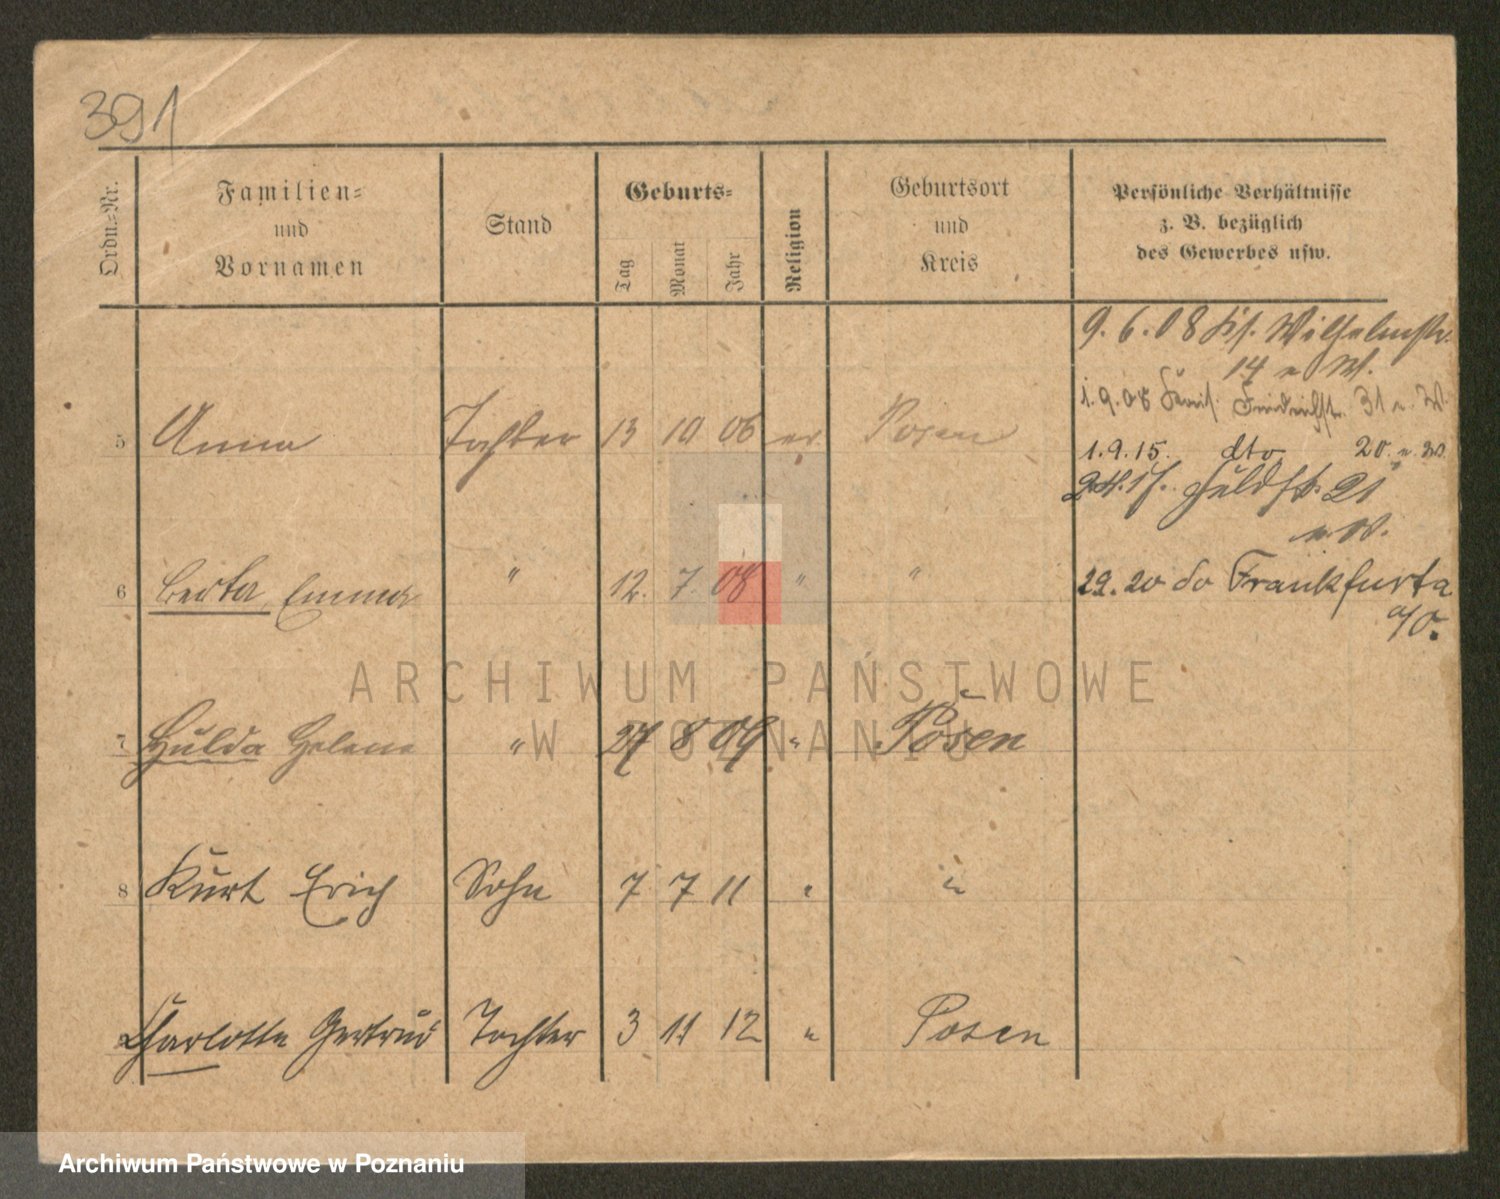 391
Ordn.-Nr.
Familien-
und
Vornamen
Stand
Geburts-
Tag
Monat
Jahr
Religion
Geburtsort
und
Kreis
Persönliche Verhältnisse
z. B. bezüglich
des Gewerbes usw.
9.6.08 Wilhelmstr.
14 n W.
5 Anna Tochter 13 10 06 ev Posen
1.9.08 Friedrichstr. 31 n. W.
1.9.15. dto 20. n. W.
21
n. W.
6 Berta Emma " 12. 7. 08 " "
29. 20 do Frankfurt a
a/O.
7 Hulda Helene " 27 8 09 " Posen
8 Kurt Erich Sohn 7 7 11 " "
Charlotte Gertrud Tochter 3 11 12 " Posen
ARCHIWUM PAŃSTWOWE
W POZNANIU
Archiwum Państwowe w Poznaniu